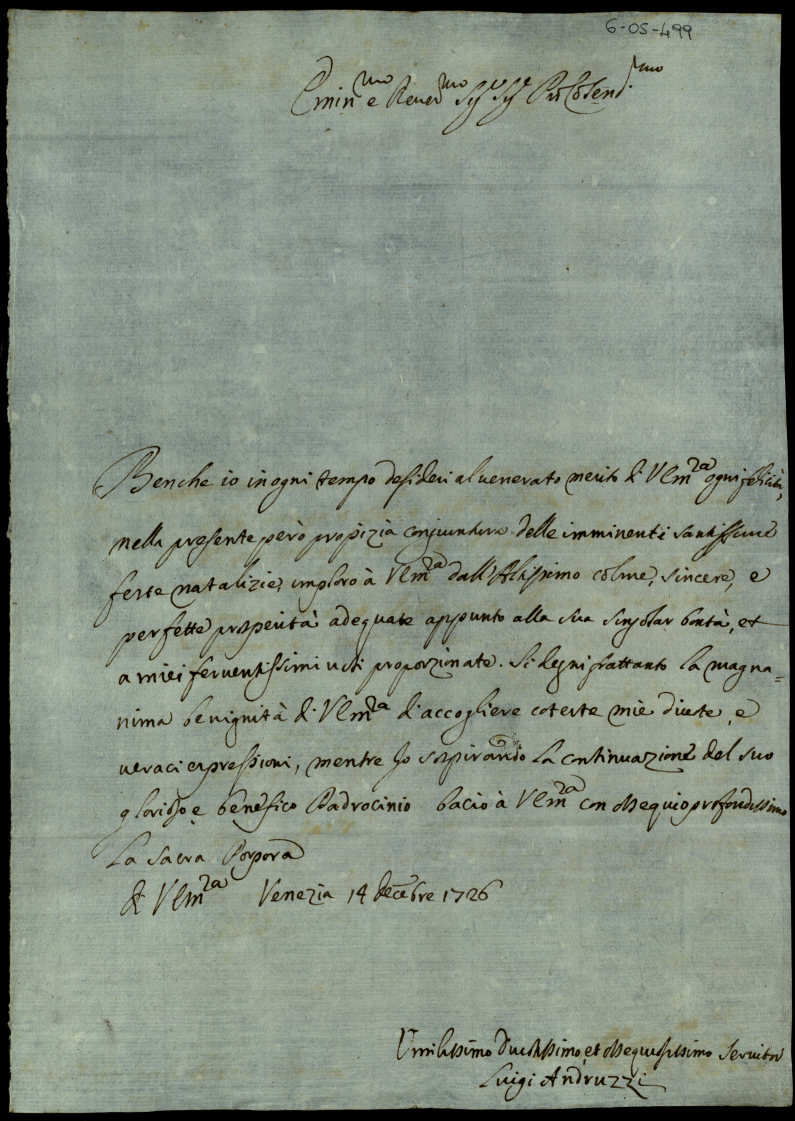 6-05-499
Emin.mo e Rever.mo Sig.r Sig.r Pron Colend.mo
Benche io in ogni tempo desideri al venerato merito di V Em.za ogni felicità,
nella presente però propizia conjuntura delle imminenti santissime
feste natalizie, imploro à V Em.za dall'Altissimo colme, sincere, e
perfette prosperità adequate appunto alla sua singolar bontà, et
a miei ferventissimi voti proporzionate. Si degni frattanto la magna=
nima benignità di V Em.za d'accogliere coteste mie divote, e
veraci espressioni, mentre Io sospirando la continuazione del suo
glorioso e benefico Padrocinio bacio à V Em.za con ossequio profondissimo
La Sacra Porpora
di V Em.za Venezia 14 decebre 1726
Umilissimo Divotissimo et ossequiosissimo Servitor
Luigi Andruzzi